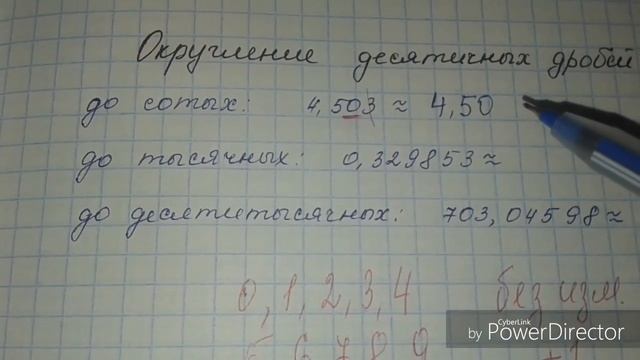 Округление десятичных дробей
до сотых: 4,503 ≈ 4,50
до тысячных: 0,329853 ≈
до десятитысячных: 703,04598 ≈
0, 1, 2, 3, 4 без изм.
CyberLink
by PowerDirector